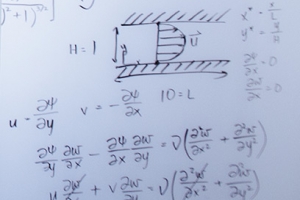 )² + 1)^(3/2)]
x* = x/L
H = 1
U⃗
y* = y/L
∂ψ/∂x = 0
u = ∂ψ/∂y v = -∂ψ/∂x 10 = L
∂ψ/∂y ∂w/∂x - ∂ψ/∂x ∂w/∂y = ν(∂²w/∂x² + ∂²w/∂y²)
u ∂w/∂x + v ∂w/∂y = ν(∂²w/∂x² + ∂²w/∂y²)